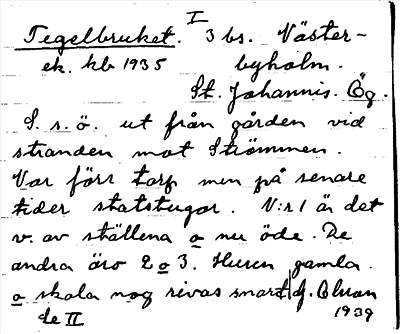 I
Tegelbruket. 3 bs. Väster-
ek. kb 1935 byholm.
St. Johannis. Ög.
S. s. ö. ut från gården vid
stranden mot Strömmen.
Var förr torp men på senare
tider statstugor. N:r 1 är det
v. av ställena o nu öde. De
andra äro 2 o 3. Husen gamla
o skola nog rivas snart. G.
de II 1939